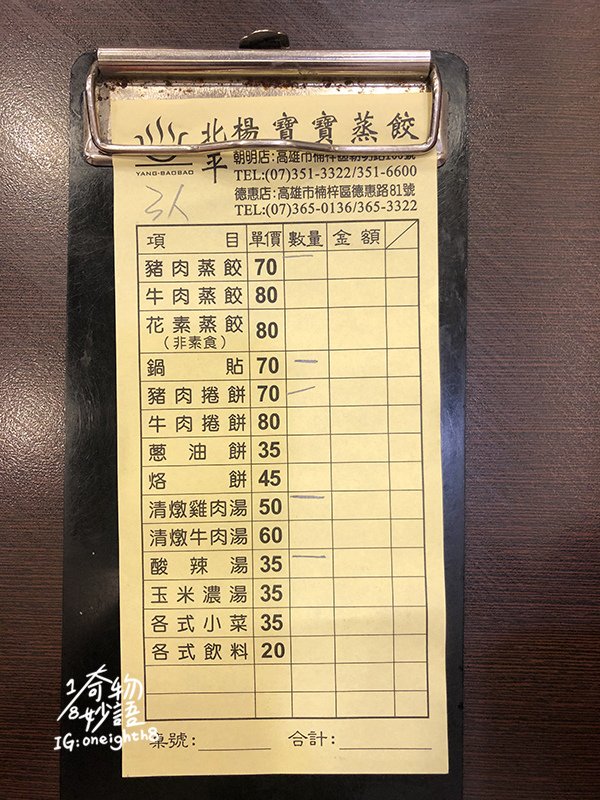 北平楊寶寶蒸餃
YANG-BAOBAO
朝明店:高雄市楠梓區朝明路106號
TEL:(07)351-3322/351-6600
德惠店:高雄市楠梓區德惠路81號
TEL:(07)365-0136/365-3322
3人
項目 單價 數量 金額
豬肉蒸餃 70 一
牛肉蒸餃 80
花素蒸餃 80
(非素食)
鍋貼 70 一
豬肉捲餅 70 一
牛肉捲餅 80
蔥油餅 35
烙餅 45
清燉雞肉湯 50 一
清燉牛肉湯 60
酸辣湯 35 一
玉米濃湯 35
各式小菜 35
各式飲料 20
桌號: 合計:
1/8奇物
妙語
IG:oneighth8